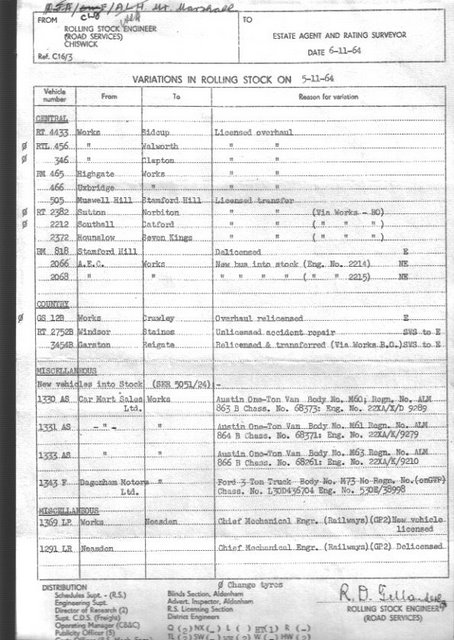 Mr. Marshall
FROM
TO
ROLLING STOCK ENGINEER
(ROAD SERVICES)
CHISWICK
ESTATE AGENT AND RATING SURVEYOR
DATE 6-11-64
Ref. C16/3
VARIATIONS IN ROLLING STOCK ON 5-11-64
Vehicle number From To Reason for variation
CENTRAL
RT 4433 Works Sidcup Licensed overhaul
Ø RTL 456 " Walworth " "
Ø 346 " Clapton " "
RM 465 Highgate Works " "
466 Uxbridge " " "
505 Muswell Hill Stamford Hill Licensed transfer
Ø RT 2382 Sutton Norbiton " " (Via Works - BO)
Ø 2212 Southall Catford " " ( " " " )
2372 Hounslow Seven Kings " " ( " " " )
RM 818 Stamford Hill Delicensed E
2066 A.E.C. Works New bus into stock (Eng. No. 2214) NE
2068 " " " " " " ( " " 2215) NE
COUNTRY
Ø GS 12B Works Crawley Overhaul relicensed E
RT 2752B Windsor Staines Unlicensed accident repair SWS to E
3454B Garston Reigate Relicensed & transferred (Via Works B.O.) SWS to E
MISCELLANEOUS
New vehicles into Stock (SER 5051/24) -
1330 AS Car Mart Sales Ltd. Works Austin One-Ton Van Body No. M60; Regn. No. ALM
863 B Chass. No. 68373: Eng. No. 22XA/X/D 9289
1331 AS - " - " Austin One-Ton Van Body No. M61 Regn. No. ALM
864 B Chass. No. 68371: Eng. No. 22XA/X/9279
1333 AS " " Austin One-Ton Van Body No. M63 Regn. No. ALM
866 B Chass. No. 68261: Eng. No. 22XA/X/9210
1343 F Dagenham Motors Ltd. " Ford 3 Ton Truck Body No. M73 No Regn. No. (onGTP)
Chass. No. L30D436704 Eng. No. 530E/38998
MISCELLANEOUS
1369 LR Works Neasden Chief Mechanical Engr. (Railways)(GP2) New vehicle
licensed
1291 LR Neasden Chief Mechanical Engr. (Railways)(GP2) Delicensed
Ø Change tyres
DISTRIBUTION
Schedules Supt. - (R.S.)
Engineering Supt.
Director of Research (2)
Supt. C.D.S. (Freight)
Operating Manager (CB&C)
Publicity Officer (5)
Blinds Section, Aldenham
Advert. Inspector, Aldenham
R.S. Licensing Section
District Engineers
ROLLING STOCK ENGINEER
(ROAD SERVICES)